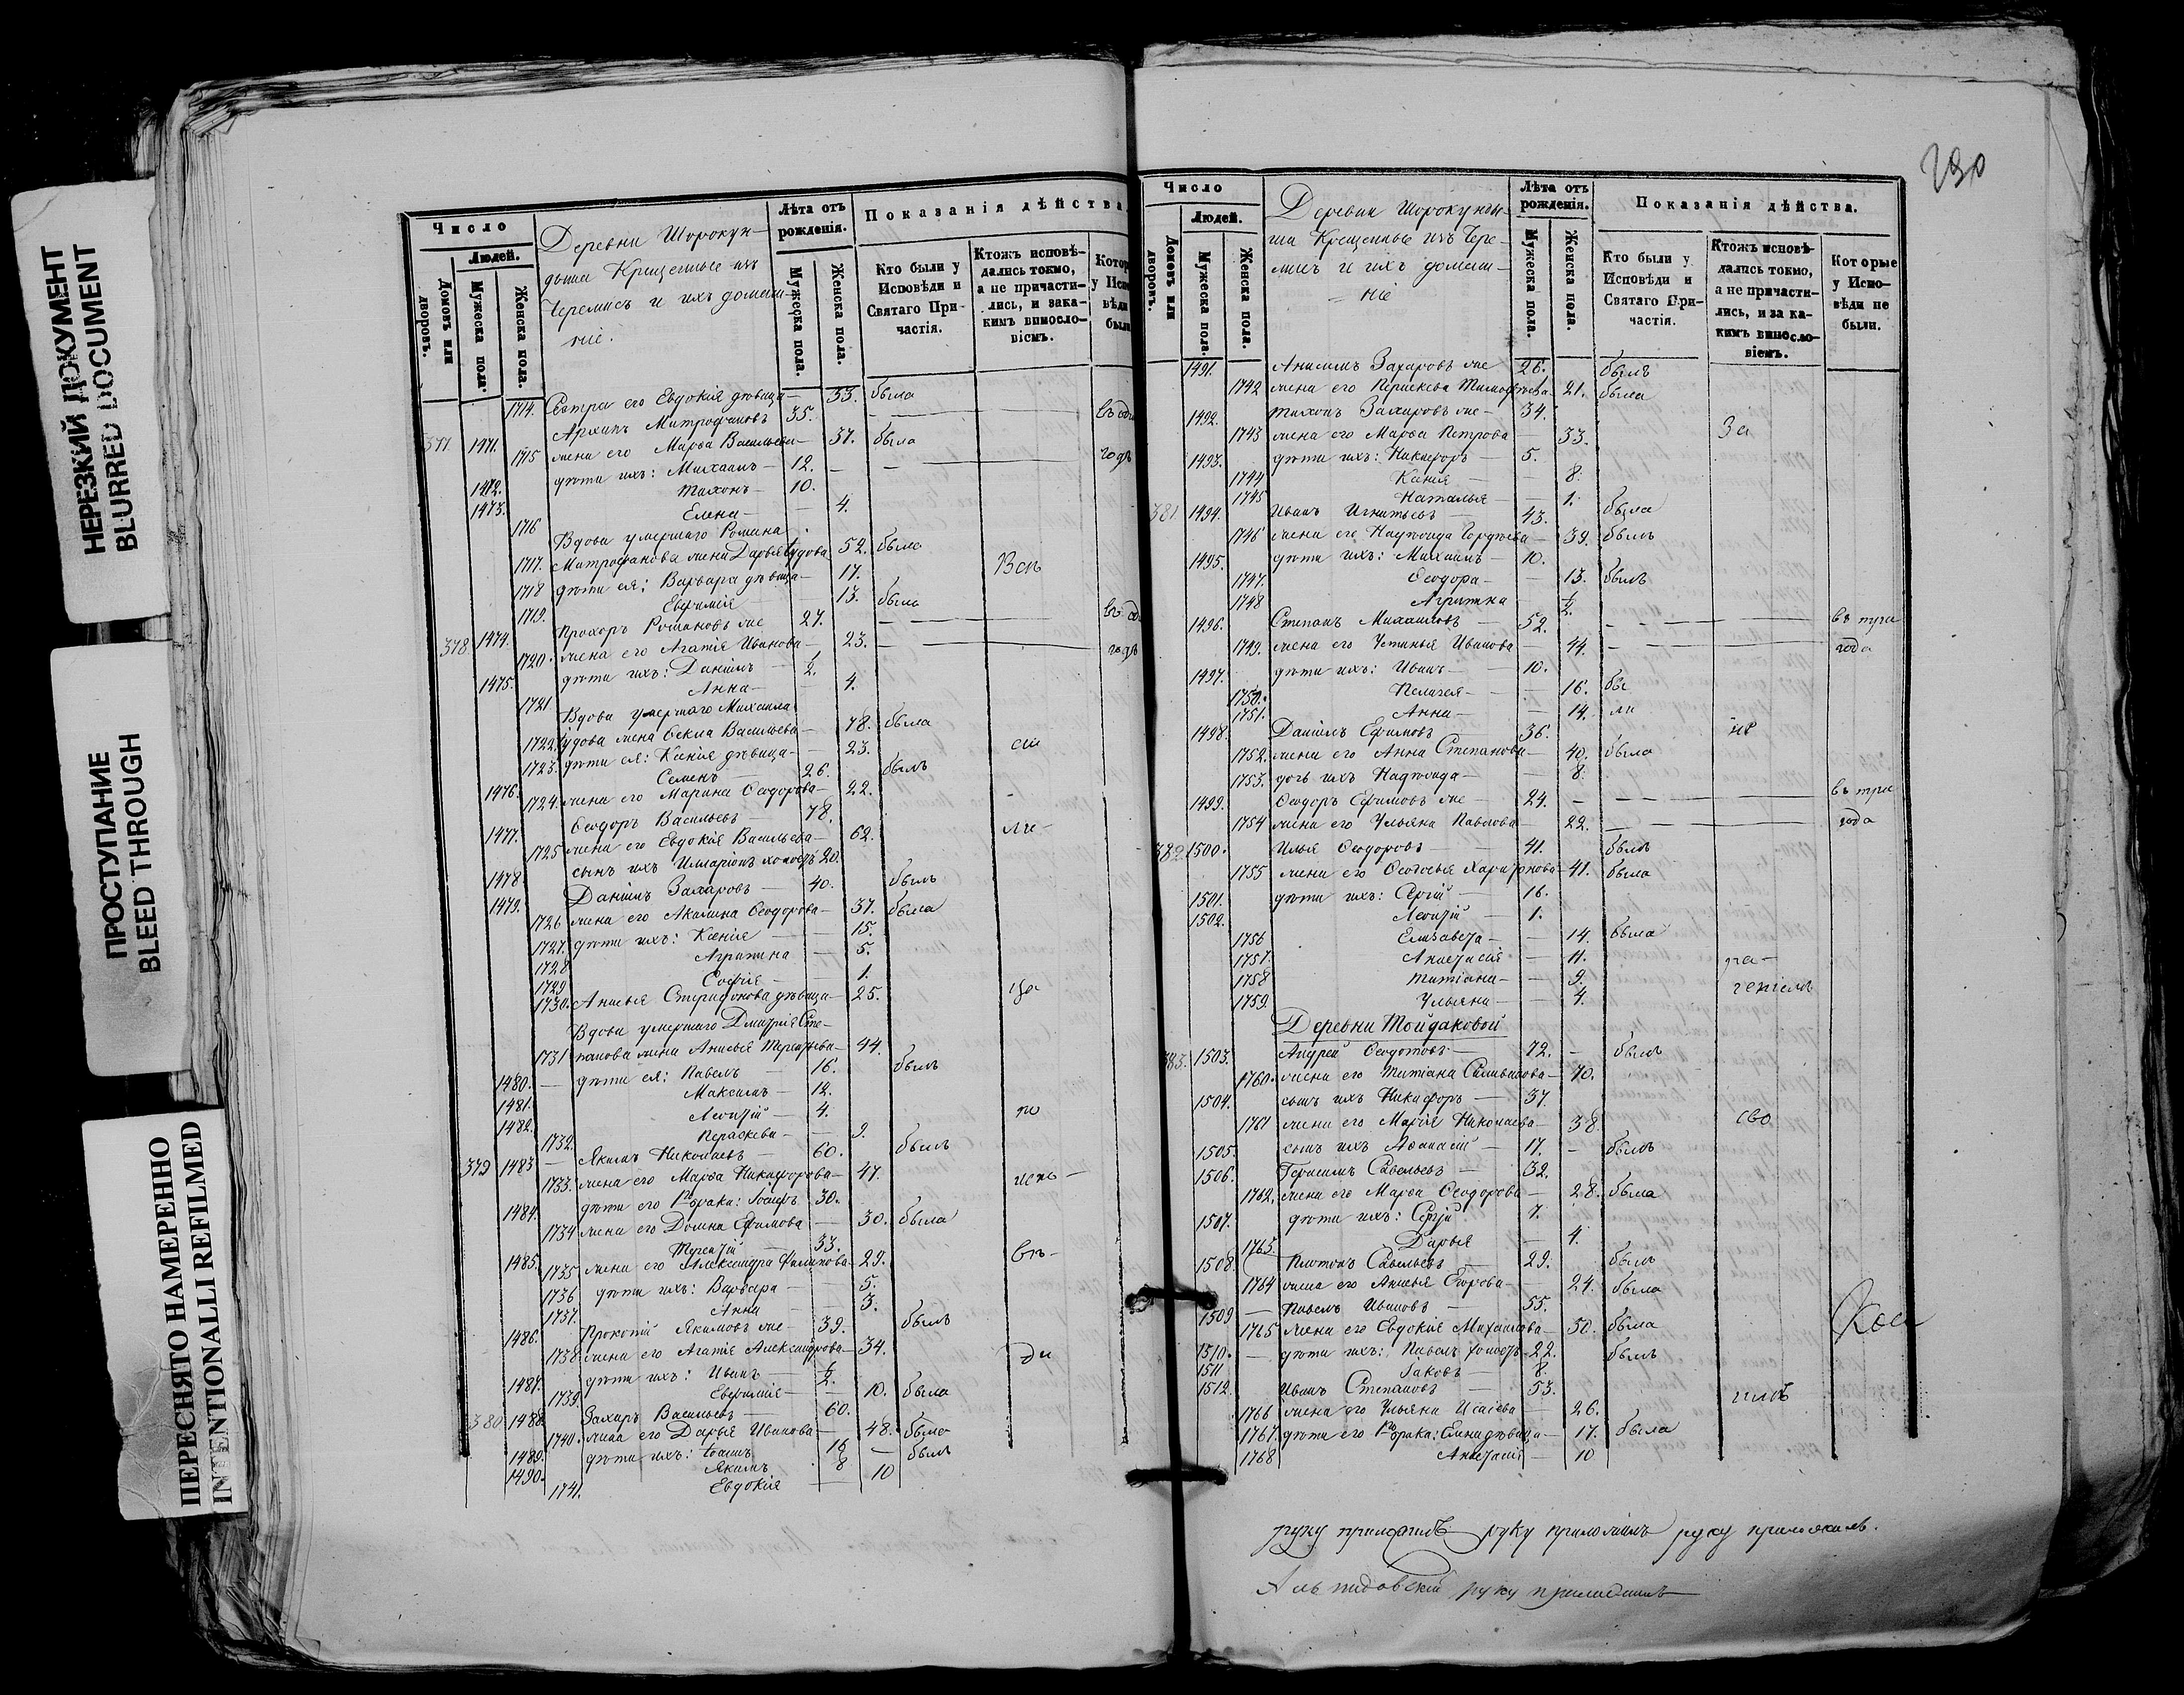 НЕРЕЗКИЙ ДОКУМЕНТ
BLURRED DOCUMENT
ПРОСТУПАНИЕ
BLEED THROUGH
ПЕРЕСНЯТО НАМЕРЕННО
INTENTIONALLI REFILMED
Число
Людей.
Домовъ или дворовъ.
Мужеска пола.
Женска пола.
Деревни Шорокун-
дыша Крещенные изъ
Черемисъ и ихъ домаш-
ніе.
Лѣта отъ рожденія.
Мужеска пола.
Женска пола.
Показанія дѣйства.
Кто были у Исповѣди и Святаго При-частія.
Ктожъ исповѣ-дались токмо, а не причасти-лись, и зака-кимъ винносло-віемъ.
1714. Сестра его Евдокія дѣвица 33. была
377. 1471. Архипъ Митрофановъ 35.
1715 жена его Марѳа Васильева 37. была годъ
1472. дѣти ихъ: Михаилъ 12.
1473. Тихонъ 10.
1716 Елена 4.
Вдова умершаго Романа
1717. Митрофанова жена Дарья Іудова 52. была
1718 дѣти ея: Варвара дѣвица 17. Всѣ
1719. Евфимія 13. была
378. 1474. Прохоръ Романовъ же 27.
1720. жена его Агапія Иванова 23. годъ
1475. дѣти ихъ: Даніилъ 1/2.
1721 Анна 4.
Вдова умершаго Михаила
1722. Іудова жена Ѳекла Васильева 78. была
1723. дѣти ея: Ксенія дѣвица 23. сіи
1476. Семенъ 26. былъ
1724. жена его Марина Ѳеодорова 22.
1477. Ѳеодоръ Васильевъ 78.
1725 жена его Евдокія Васильева 62. лю-
1478 сынъ ихъ Илларіонъ холостъ 20.
1479. Даніилъ Захаровъ 40. былъ
1726 жена его Акилина Ѳеодорова 37. была
1727. дѣти ихъ: Ксенія 15.
1728 Агрипина 5.
1729 Софія 1.
1730. Анисья Спиридонова дѣвица 25.
Вдова умершаго Дмитрія Сте-
1731 панова жена Анисья Терентьева 44.
1480. дѣти ея: Павелъ 16. былъ
1481. Максимъ 12.
1482. Леонтій 4. по
1732. Параскева 9.
379 1483 Якимъ Николаевъ 60. былъ
1733. жена его Марѳа Никифорова 47.
1484. дѣти его 1го брака: Іосифъ 30.
1734 жена его Домна Ефимова 30. была
1485. Терентій 33. вѣ-
1735 жена его Александра Филипова 29.
1736 дѣти ихъ: Варвара 5.
1737. Анна 3.
1486. Прокопій Якимовъ же 39. былъ
1738 жена его Агапія Александрова 34. ди
1487. дѣти ихъ: Иванъ 1/2.
1739. Евфимія 10. была
380 1488 Захаръ Васильевъ 60.
1740. жена его Дарья Иванова 48. была
1489. дѣти ихъ: Іоаннъ 18 былъ
1490. Якимъ 8
1741. Евдокія 10
Число
Людей.
Домовъ или дворовъ.
Мужеска пола.
Женска пола.
Деревни Шорокунды-
ша Крещенные изъ Чере-
мисъ и ихъ домаш-
ніе
Лѣта отъ рожденія.
Мужеска пола.
Женска пола.
Показанія дѣйства.
Кто были у Исповѣди и Святаго При-частія.
Ктожъ исповѣ-дались токмо, а не причасти-лись, и за ка-кимъ винносло-віемъ.
Которые у Испо-вѣди не были.
1491. Анисимъ Захаровъ же 26. былъ
1742 жена его Параскева Тимофѣева 21. была
1492. Тихонъ Захаровъ же 34.
1743 жена его Марѳа Петрова 33. За
1493. дѣти ихъ: Никифоръ 5.
1744 Ксенія 8.
1745 Наталья 1.
381 1494. Иванъ Игнатьевъ 43. была
1746 жена его Надежда Гордѣева 39. былъ
1495. дѣти ихъ: Михаилъ 10.
1747. Ѳеодора 13. былъ
1748 Агрипина 1/2.
1496. Степанъ Михаиловъ 52. въ три
1749. жена его Устинья Иванова 44. года
1497. дѣти ихъ: Иванъ 10.
1750. Пелагея 16. бы
1751. Анна 14. ли
1498. Даніилъ Ефимовъ 36.
1752. жена его Анна Степанова 40. была
1753. дочь ихъ Надежда 8.
1499. Ѳеодоръ Ефимовъ же 24. въ три
1754 жена его Ульяна Павлова 22. года
382 1500. Илья Ѳеодоровъ 41. былъ
1755 жена его Ѳеодосья Харитонова 41. была
1501. дѣти ихъ: Сергій 16.
1502. Леонтій 1.
1756 Елизавета 14. была
1757 Анастасія 11. ра-
1758 Татіана 9. ченіемъ
1759. Ульяна 4.
Деревни Тойдаковой
383. 1503. Андрей Ѳедотовъ 72. былъ
1760. жена его Татіана Сильванова 70.
1504. сынъ ихъ Никифоръ 37.
1761 жена его Марія Николаева 38. сво
1505. сынъ ихъ Аѳанасій 17. былъ
1506. Герасимъ Савельевъ 32.
1762. жена его Марѳа Ѳеодорова 28. была
1507. дѣти ихъ: Сергій 7.
1763. Дарья 4.
1508. Платонъ Савельевъ 29. былъ
1764 жена его Анисья Егорова 24. была
1509 Павелъ Ивановъ 55.
1765 жена его Евдокія Михаилова 50. была
1510. дѣти ихъ: Павелъ холостъ 22. былъ
1511 Іаковъ 8.
1512. Иванъ Степановъ 53.
1766 жена его Ульяна Исаіева 26.
1767. дѣти его 1го брака: Елена дѣвица 17. была
1768 Анастасія 10
руку приложилъ руку приложилъ руку приложилъ.
руку приложилъ